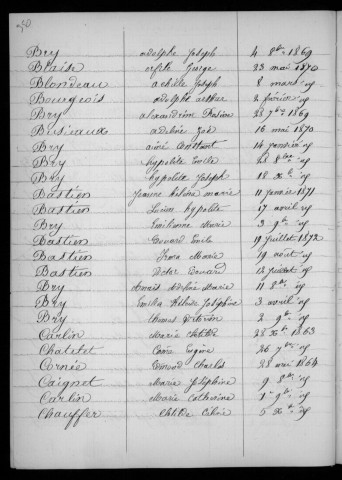 Bry adolphe Joseph 4 8bre 1869
Blaise orfile George 23 mai 1870
Blondeau achille Joseph 8 mars id
Bourgeois adolphe arthur 2 février id
Bry alexandrine 28 7bre 1869
Busieaux adeline Zoé 16 mai 1870
Bry aimé Constant 14 janvier id
Bry hypolite Emile 28 8bre id
Bry hypolite Joseph 18 Xbre id
Bastien Jeanne marie 11 janvier 1871
Bastien Lucien hypolite 17 avril id
Bry Marie 3 9bre id
Bastien Emile 19 juillet 1872
Bastien Irma Marie 19 aout id
Bastien Victor Edouard 12 juillet id
Bry Anaïs Adèle Marie 11 8bre id
Bry Emilia Joséphine 3 avril id
Bry 2 9bre id
Carlin Marie Clotilde 28 Xbre 1863
Chatelet Eugène 26 7bre id
Cornée Edmond Charles 28 mai 1864
Caignet Marie Joséphine 9 8bre id
Carlin Marie Catherine 1er 9bre id
Chauffer Clotilde 5 Xbre id